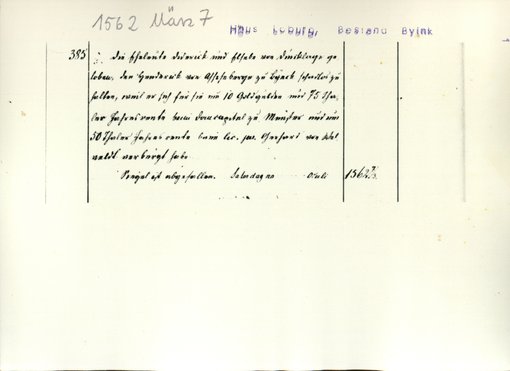 1562 März 7
Haus Loburg, Bestand Byink
385
Die Eheleute Diderick und Elseke von Dincklage ge
loben, den Henderick von Asschebergh zu Byinck schadlos zu
halten, weil er sich für sie um 10 Goldgulden und 75 Tha
ler Jahresrente beim Domcapitel zu Münster und um
50 Thaler Jahresrente beim lic. jur. Gerhard von
verbürgt habe
Siegel ist abgefallen. Saterdag na Oculi 1562 7/3.